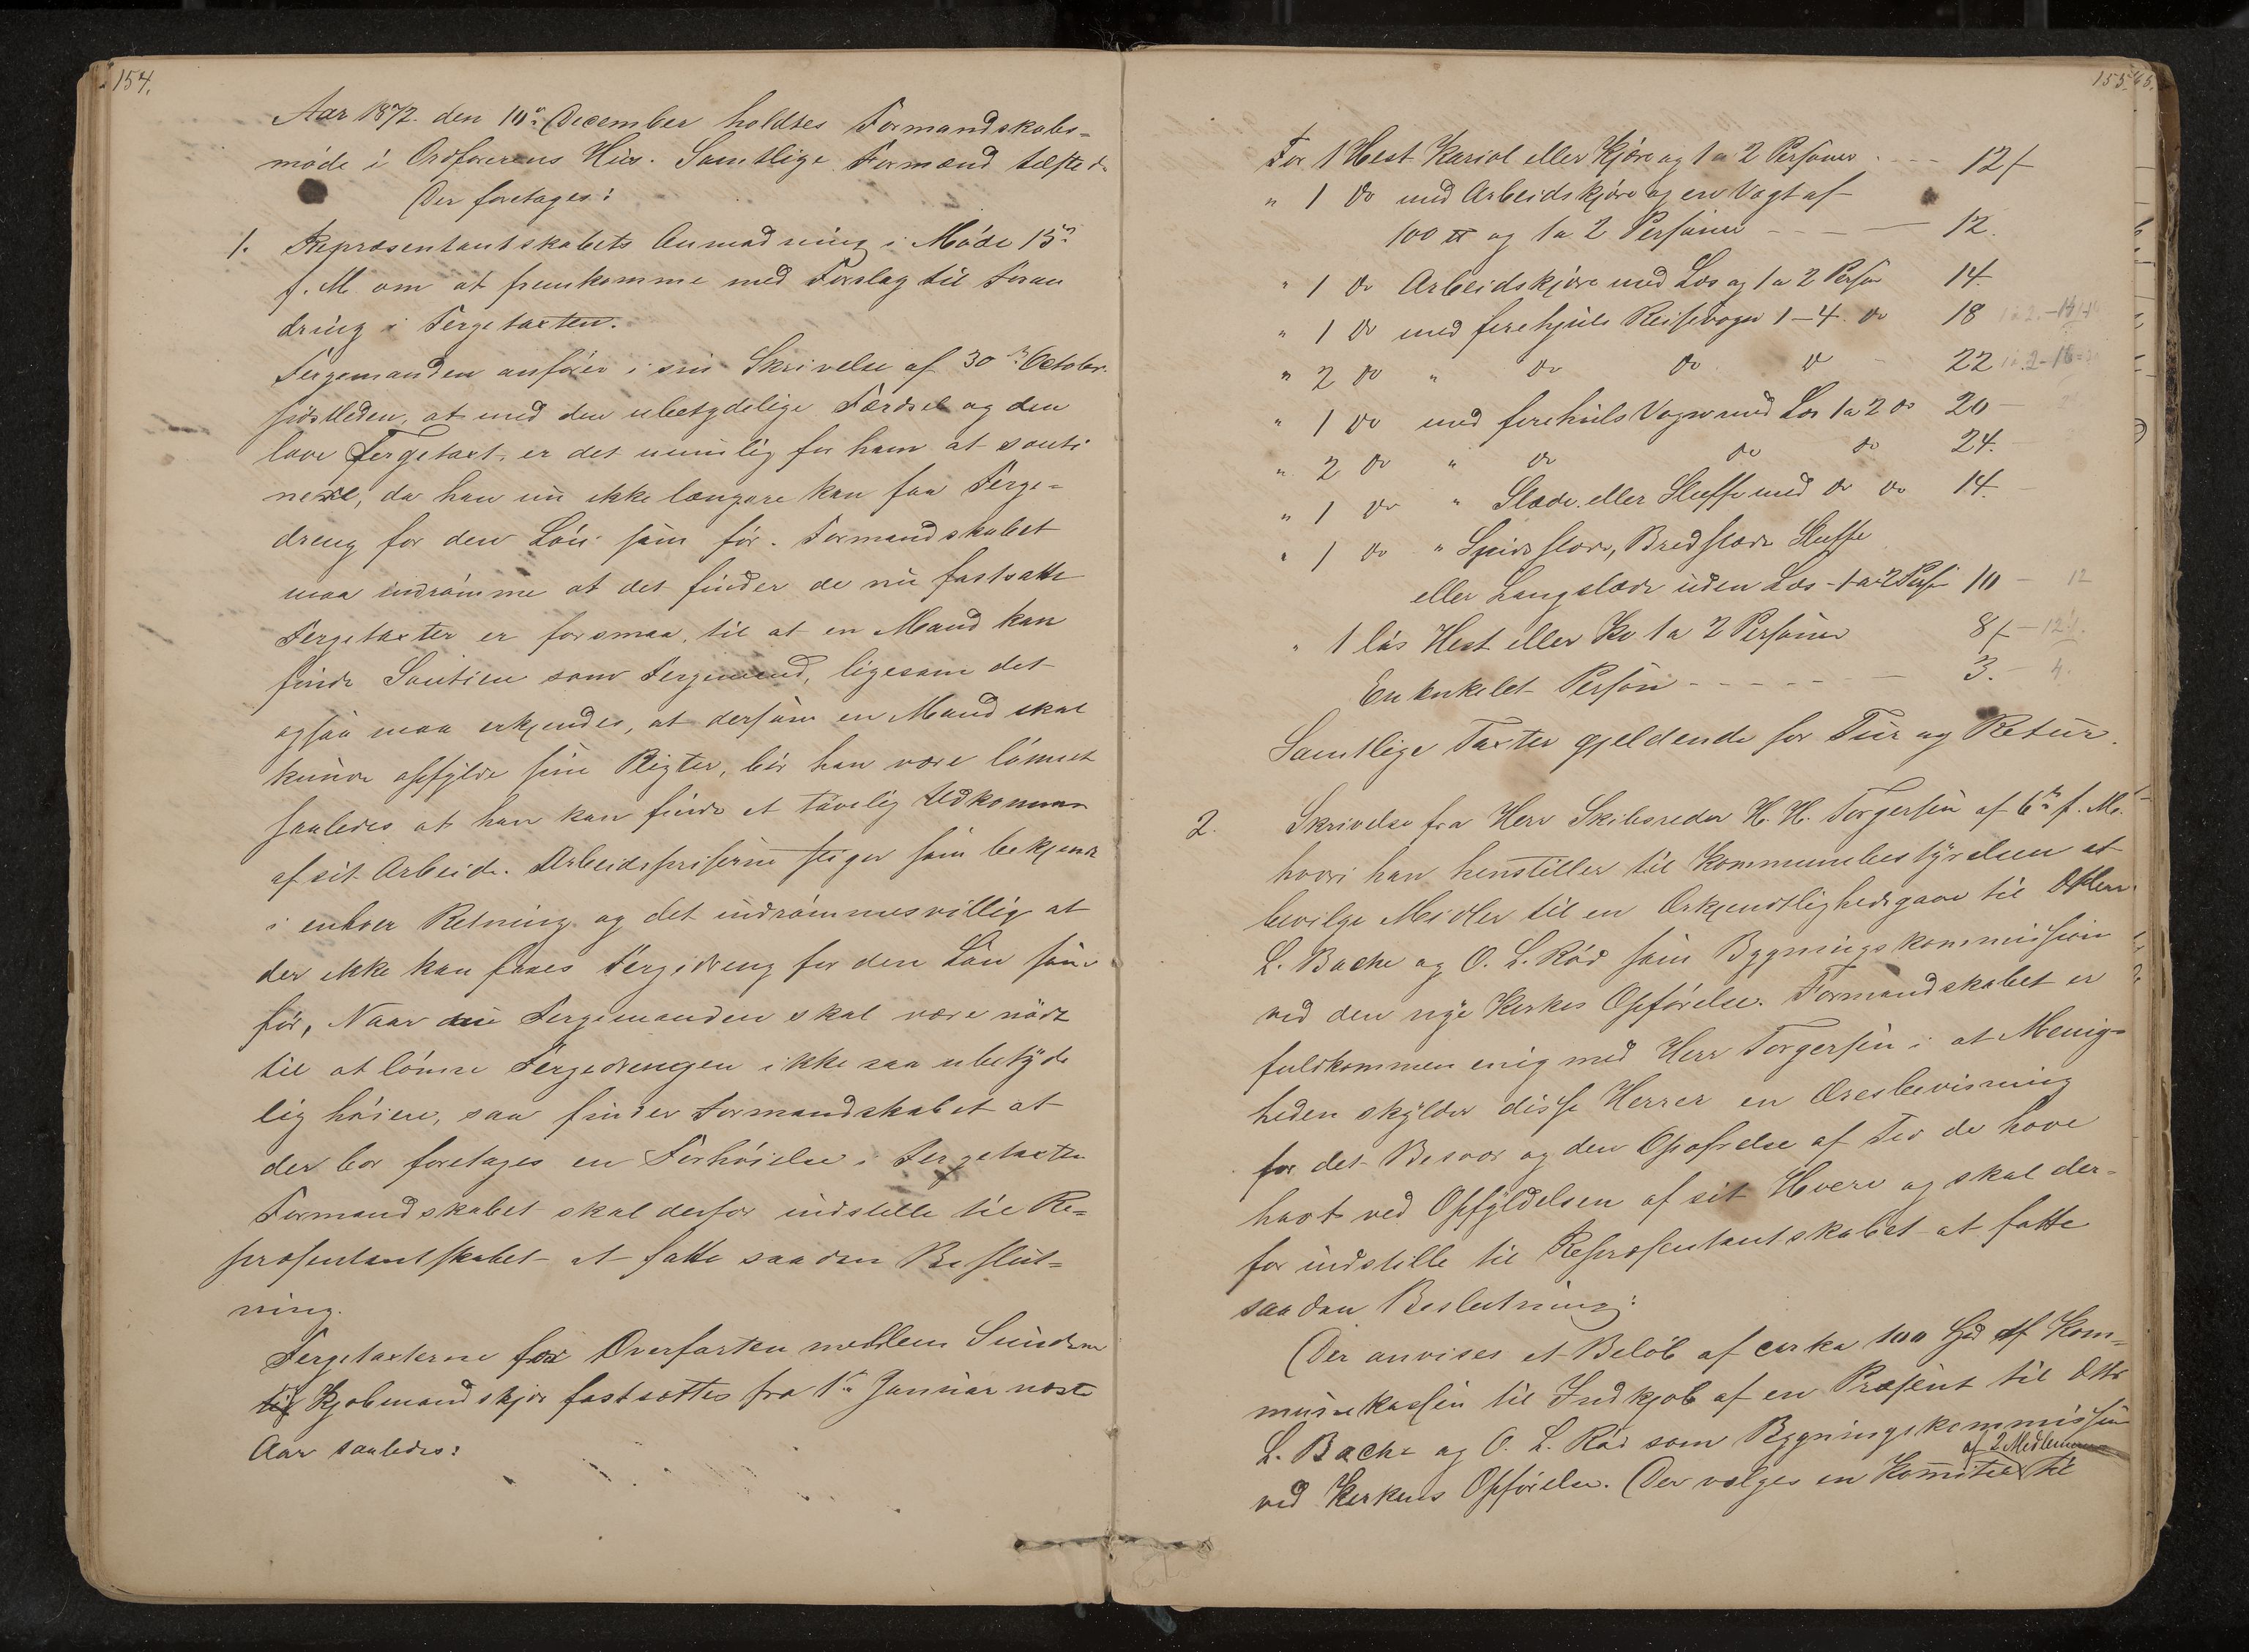 154.
Aar 1872 den 10de December holdtes Formandskabs-
møde i Ordførerens Hus. Samtlige Formænd tilstede
Der foretages:
1. Repræsentantskabets Anmodning i Møde 15de
f. M. om at fremkomme med Forslag til Foran
dring i Fergetaxten.
Fergemanden anfører i sin Skrivelse af 30te October
sidstleden, at med den ubetydelige Færdsel og den
lave Fergetaxt, er det umulig for ham at conti
nere, da han nu ikke længere kan faa Ferge-
dreng for den Løn som før. Formandskabet
maa indrømme at det finder de nu fastsatte
Fergetaxter er for smaa til at en Mand kan
finde Soutien som Fergemand, ligesom det
ogsaa maa erkjendes, at dersom en Mand skal
kunne opfylde sine Pligter, bør han være lønnet
saaledes at han kan finde et taalelig Udkomme
af sit Arbeide. Arbeidspriserne stiger som bekjendt
i enhver Retning og det indrømmes villig at
der ikke kan faaes Fergedreng for den Løn som
før, Naar nu Fergemanden skal være nødt
til at lønne Fergedrengen ikke saa ubetyde
lig høiere, saa finder Formandskabet at
der bør foretages en Forhøielse i Fergetaxten
Formandskabet skal derfor indstille til Re-
præsentantskabet at fatte saadan Beslut-
ning.
Fergetaxterne for Overfarten mellem Sundene
til Kjøbmandskjær fastsættes fra 1ste Januar næste
Aar saaledes:
155.
For 1 Hest Kariol eller Kjøre og 1 a 2 Personer - - - 12 ſ
" 1 do med Arbeidskjøre og en Vægt af
100 ℔ og 1 a 2 Personer - - - 12.
" 1 do Arbeidskjøre med Læs og 1 a 2 Person 14.
" 1 do med firehjuls Reisevogn 1-4 do 18
" 2 do " do do do 22
" 1 do med firehiuls Vogn med Læs 1 a 2 do 20
" 2 do " do do do 24.
" 1 do " Slæde eller Sluffe med do do 14.
" 1 do " Spidsslæde, Bredslæde Sluffe
eller Langslæde uden Læs - 1 a 2 Perso 10 - 12
" 1 løs Hest eller Ko 1 a 2 Personer 8 ſ - 12
En enkelt Person - - - - - - 3. - 4.
Samtlige Taxter gjeldende for Tur og Retur.
2. Skrivelse fra Herr Skibsreder H. H. Torgersen af 6te f. M.
hvori han henstiller til Kommunebestyrelsen at
bevilge Midler til en Erkjendtlighedsgave til DHerr.
L. Bache og O. L. Rød som Bygningskommission
ved den nye Kirkes Opførelse. Formandskabet er
fuldkommen enig med Herr Torgersen i at Menig-
heden skylder disse Herrer en Æresbevisning
for det Besvær og den Opofrelse af Tid de have
havt ved Opfyldelsen af sit Hverv og skal der-
for indstille til Repræsentantskabet at fatte
saadan Beslutning:
Der anvises et Beløb af cirka 100 Spd af Kom-
munekassen til Indkjøb af en Præsent til DHr
L. Bache og O. L. Rød som Bygningskommission
ved Kirkens Opførelse. Der vælges en Komitee af 2 Medlemmer til